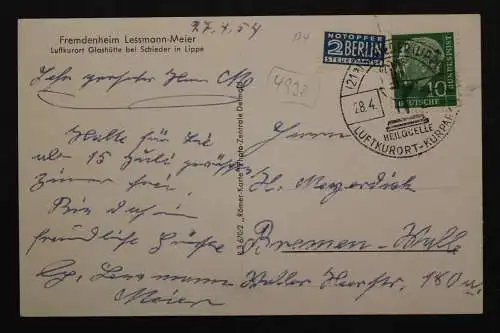 27.4.54
Fremdenheim Lessmann-Meier
Luftkurort Glashütte bei Schieder in Lippe
NOTOPFER
2 BERLIN
STEUERMARKE
10
DEUTSCHE
BUNDESPOST
28.4.
HEILQUELLE
LUFTKURORT-KURPA
4938
Sehr geehrter Herr M.
Hatte für Sie
ab 15 Juli
Zimmer frei.
Bin doch
freundliche Grüsse
Lessmann
Meier
Herrn
H. Meyerdierk
Bremen-Walle
Waller Heerstr. 180